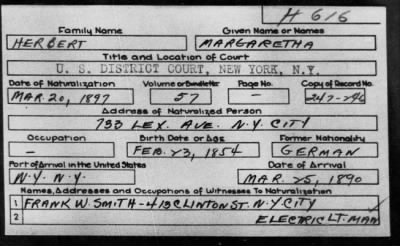 H 616
Family Name Given Name or Names
HERBERT MARGARETHA
Title and Location of Court
U. S. DISTRICT COURT, NEW YORK, N.Y.
Date of Naturalization Volume or Bundle Nr. Page No. Copy of Record No.
MAR. 20, 1897 57 — 247-
Address of Naturalized Person
733 LEX. AVE. N.Y. CITY
Occupation Birth Date or Age Former Nationality
— FEB. 23, 1854 GERMAN
Port of Arrival in the United States Date of Arrival
N.Y. N.Y. MAR. 25, 1890
Names, Addresses and Occupations of Witnesses To Naturalization
1 FRANK W. SMITH - 413 CLINTON ST. N.Y. CITY
2 ELECTRIC LT. MAN